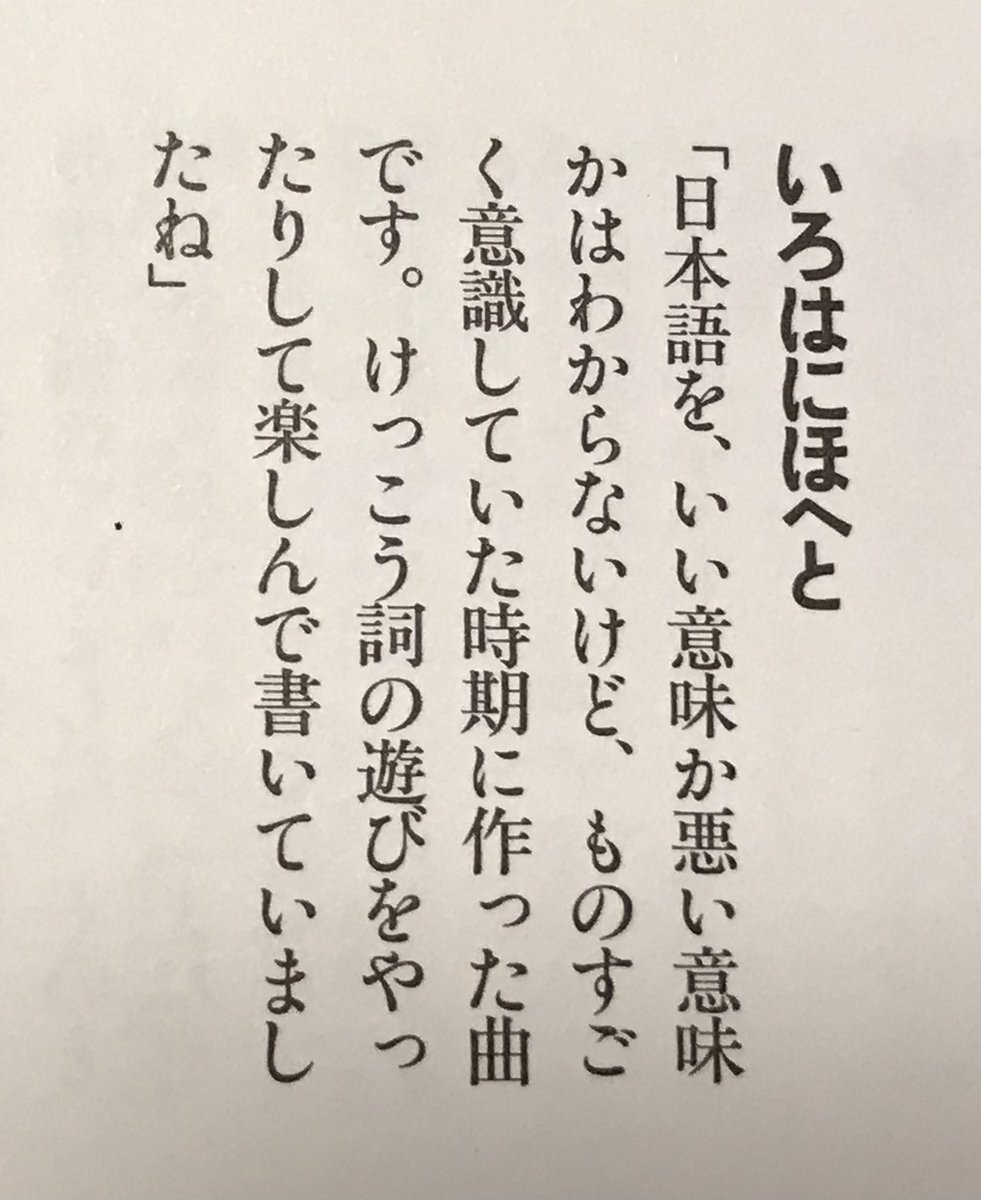 いろはにほへと
「日本語を、いい意味か悪い意味
かはわからないけど、ものすご
く意識していた時期に作った曲
です。けっこう詞の遊びをやっ
たりして楽しんで書いていまし
たね」